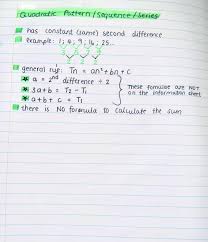 Quadratic Pattern/Sequence/Series
has constant (same) second difference
example: 1; 4; 9; 16; 25...
general rule: Tn = an² + bn + c
a = 2nd difference ÷ 2
3a + b = T₂ - T₁
a + b + c = T₁
These formulae are NOT on the information sheet
there is NO formula to calculate the sum